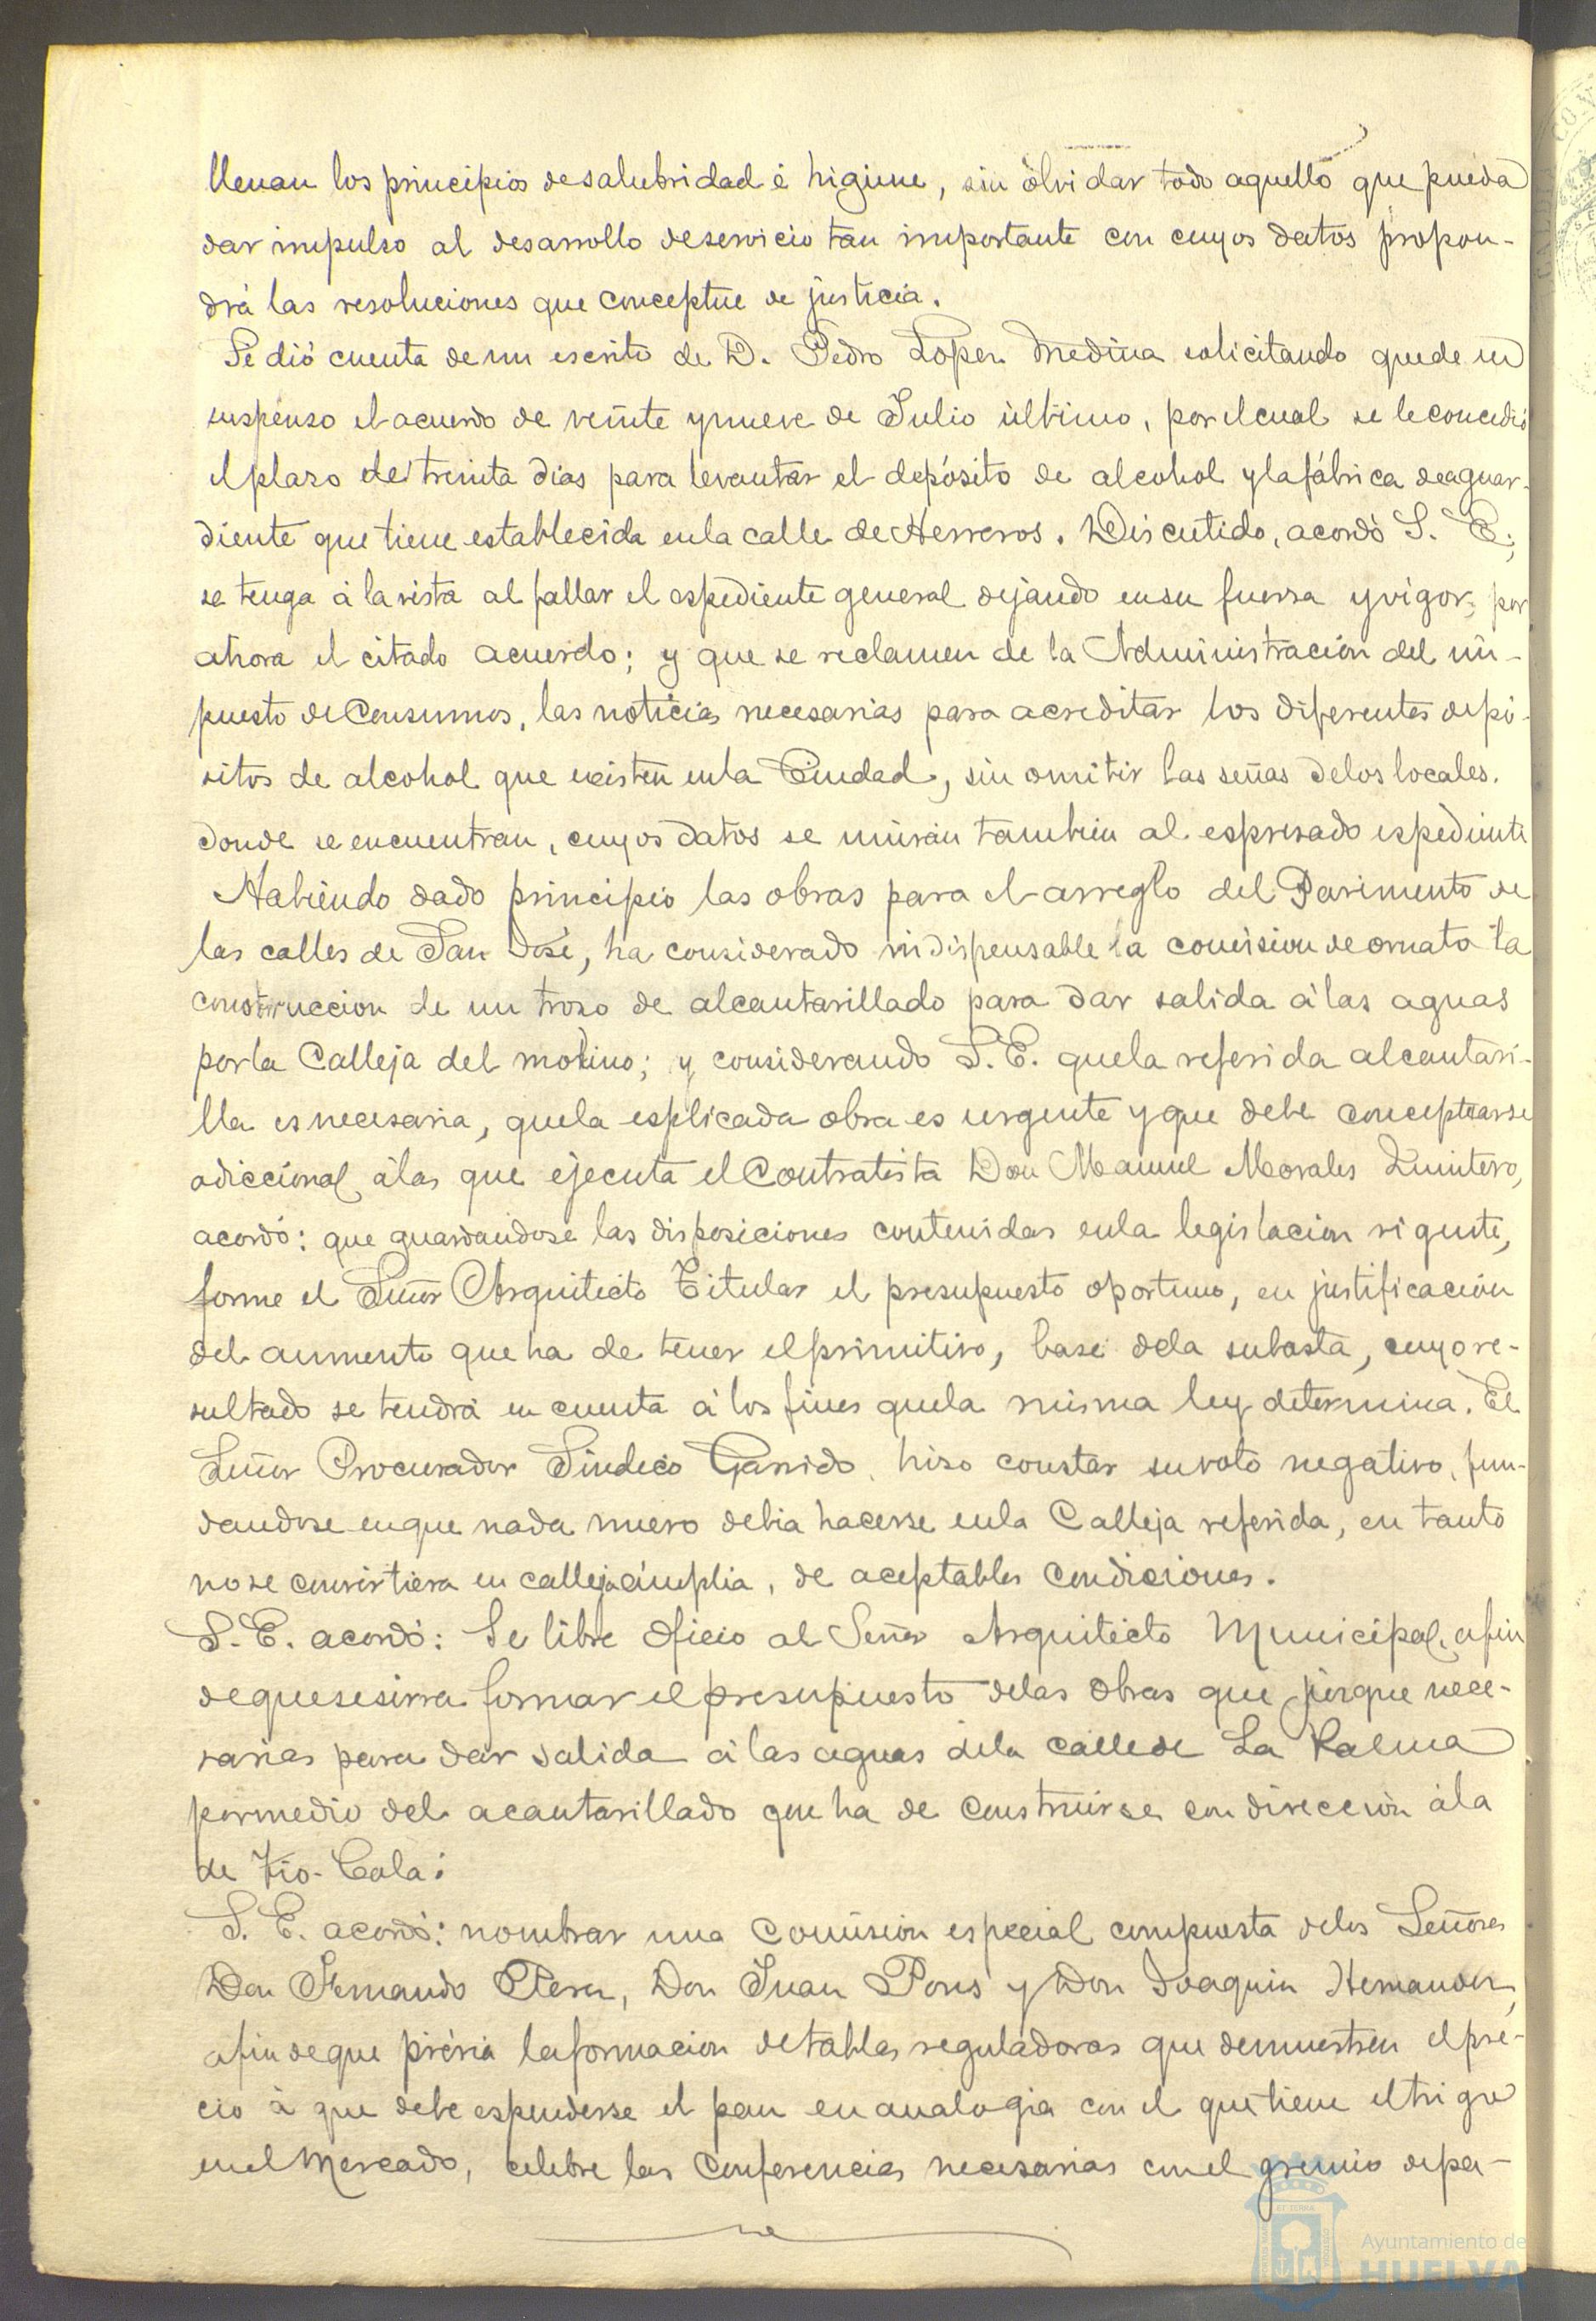 llenan los principios de salubridad é higiene, sin olvidar todo aquello que pueda
dar impulso al desarrollo de servicio tan importante con cuyos datos propon-
drá las resoluciones que conceptúe de justicia.
Se dió cuenta de un escrito de D. Pedro Lopez Medina solicitando quede en
suspenso el acuerdo de veinte y nueve de Julio último, por el cual se le concedió
el plazo de treinta dias para levantar el depósito de alcohol y la fábrica de aguar-
diente que tiene establecida en la calle de Herreros. Discutido, acordó S. E.,
se tenga á la vista al fallar el espediente general dejando en su fuerza y vigor, por
ahora el citado acuerdo; y que se reclamen de la Administración del im-
puesto de Consumos, las noticias necesarias para acreditar los diferentes depó-
sitos de alcohol que existen en la Ciudad, sin omitir las señas de los locales.
donde se encuentran, cuyos datos se unirán tambien al espresado espediente
Habiendo dado principio las obras para el arreglo del Pavimento de
las calles de San José, ha considerado indispensable la comision de ornato la
construccion de un trozo de alcantarillado para dar salida á las aguas
por la Calleja del molino; y considerando S. E. que la referida alcantari-
lla es necesaria, que la esplicada obra es urgente y que debe conceptuarse
adiccional á las que ejecuta el Contratista Don Manuel Morales Quintero,
acordó: que guardandose las disposiciones contenidas en la legislación vigente,
forme el Señor Arquitecto Titular el presupuesto oportuno, en justificación
del aumento que ha de tener el primitivo, base de la subasta, cuyo re-
sultado se tendrá en cuenta á los fines que la misma ley determina. El
Señor Procurador Síndico Garrido, hizo constar su voto negativo, fun-
dandose en que nada nuevo debia hacerse en la Calleja referida, en tanto
no se convirtiera en calleja ámplia, de aceptables condiciones.
S. E. acordó: Se libre oficio al Señor Arquitecto Municipal, a fin
de que se sirva formar el presupuesto de las obras que juzgue nece-
sarias para dar salida á las aguas de la calle de La Palma
por medio del acantarillado que ha de construirse con dirección á la
de Tío-Cala:
S. E. acordó: nombrar una Comisión especial compuesta de los Señores
Don Fernando Perez, Don Juan Pons y Don Joaquin Hernandez,
a fin de que prévia la formacion de tablas reguladoras que demuestren el pre-
cio á que debe espenderse el pan en analogia con el que tiene el trigo
en el Mercado, celebre las conferencias necesarias con el gremio de pa-
Ayuntamiento de
HUELVA